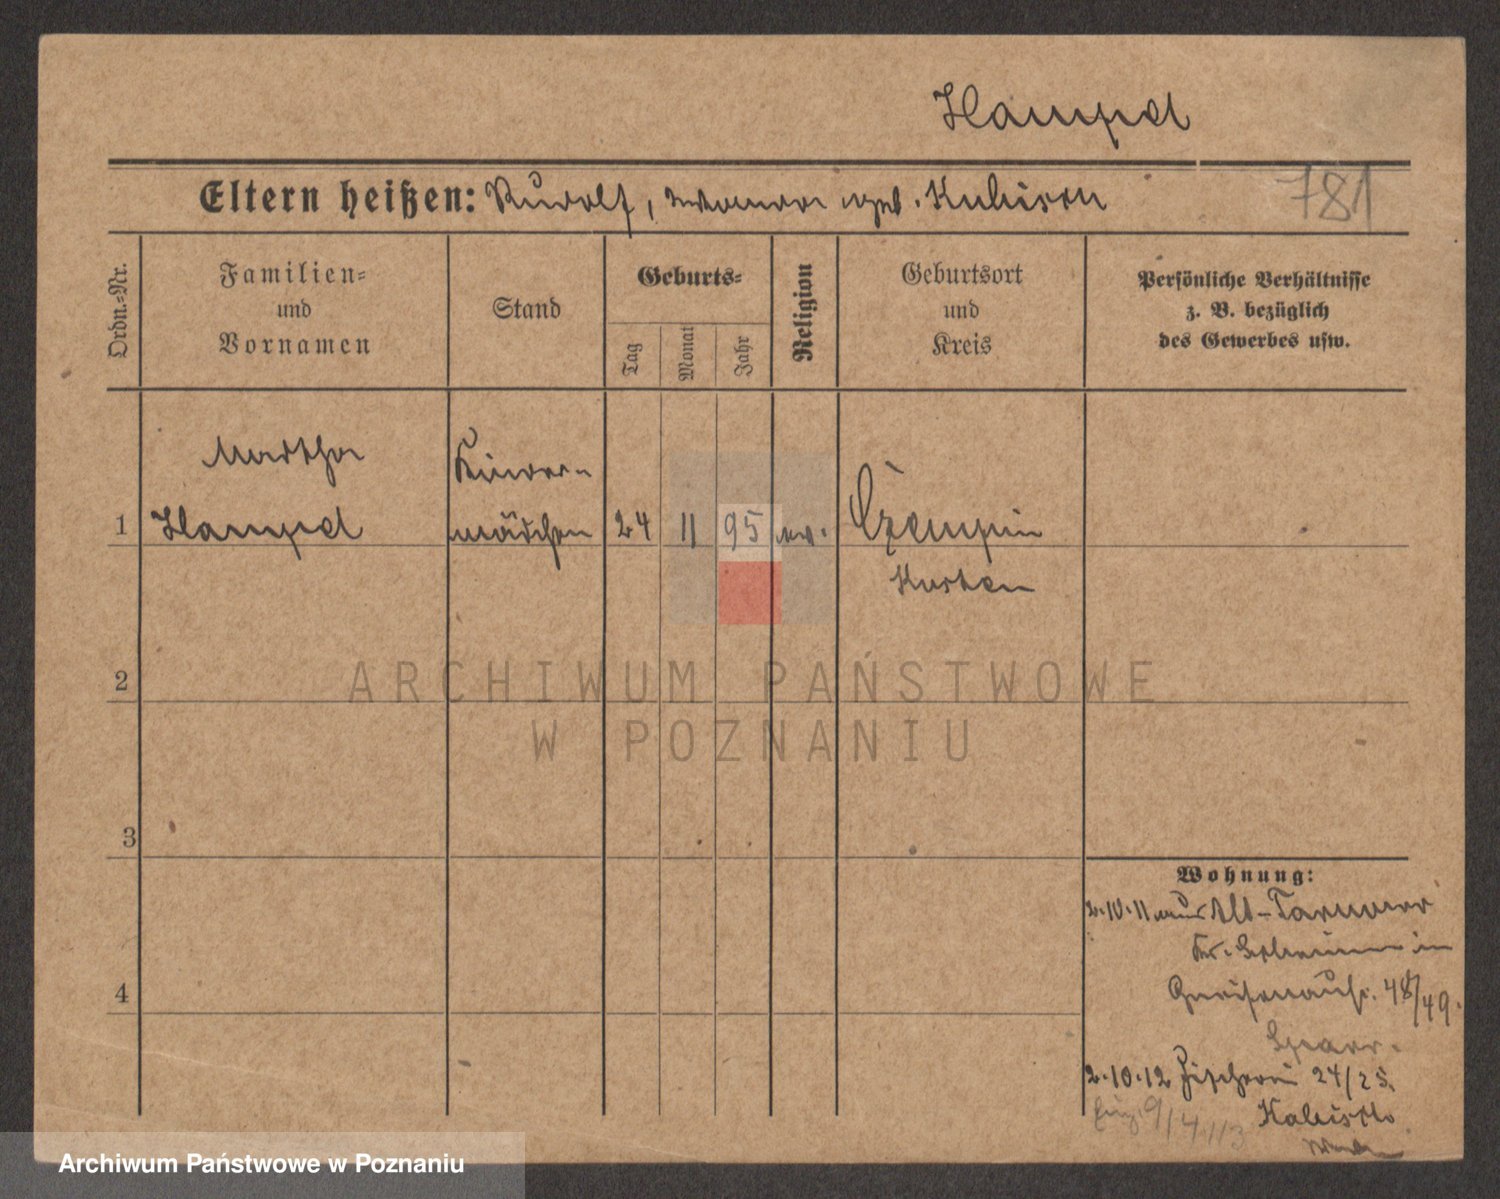 Hampel
Eltern heißen: Rudolf, geb.
781
Ordn.-Nr.
Familien-
und
Vornamen
Stand
Geburts-
Tag
Monat
Jahr
Religion
Geburtsort
und
Kreis
Persönliche Verhältnisse
z. B. bezüglich
des Gewerbes usw.
Martha
Kinder-
1 Hampel mädchen 24 11 95 ev. Czempin
Kosten
2
ARCHIWUM PAŃSTWOWE
W POZNANIU
3
Wohnung:
2.10.11 aus Alt-
Kr. in
4
Gneisenaustr. 48/49.
2.10.12 Fischerei 24/25.
9/4.113
Archiwum Państwowe w Poznaniu